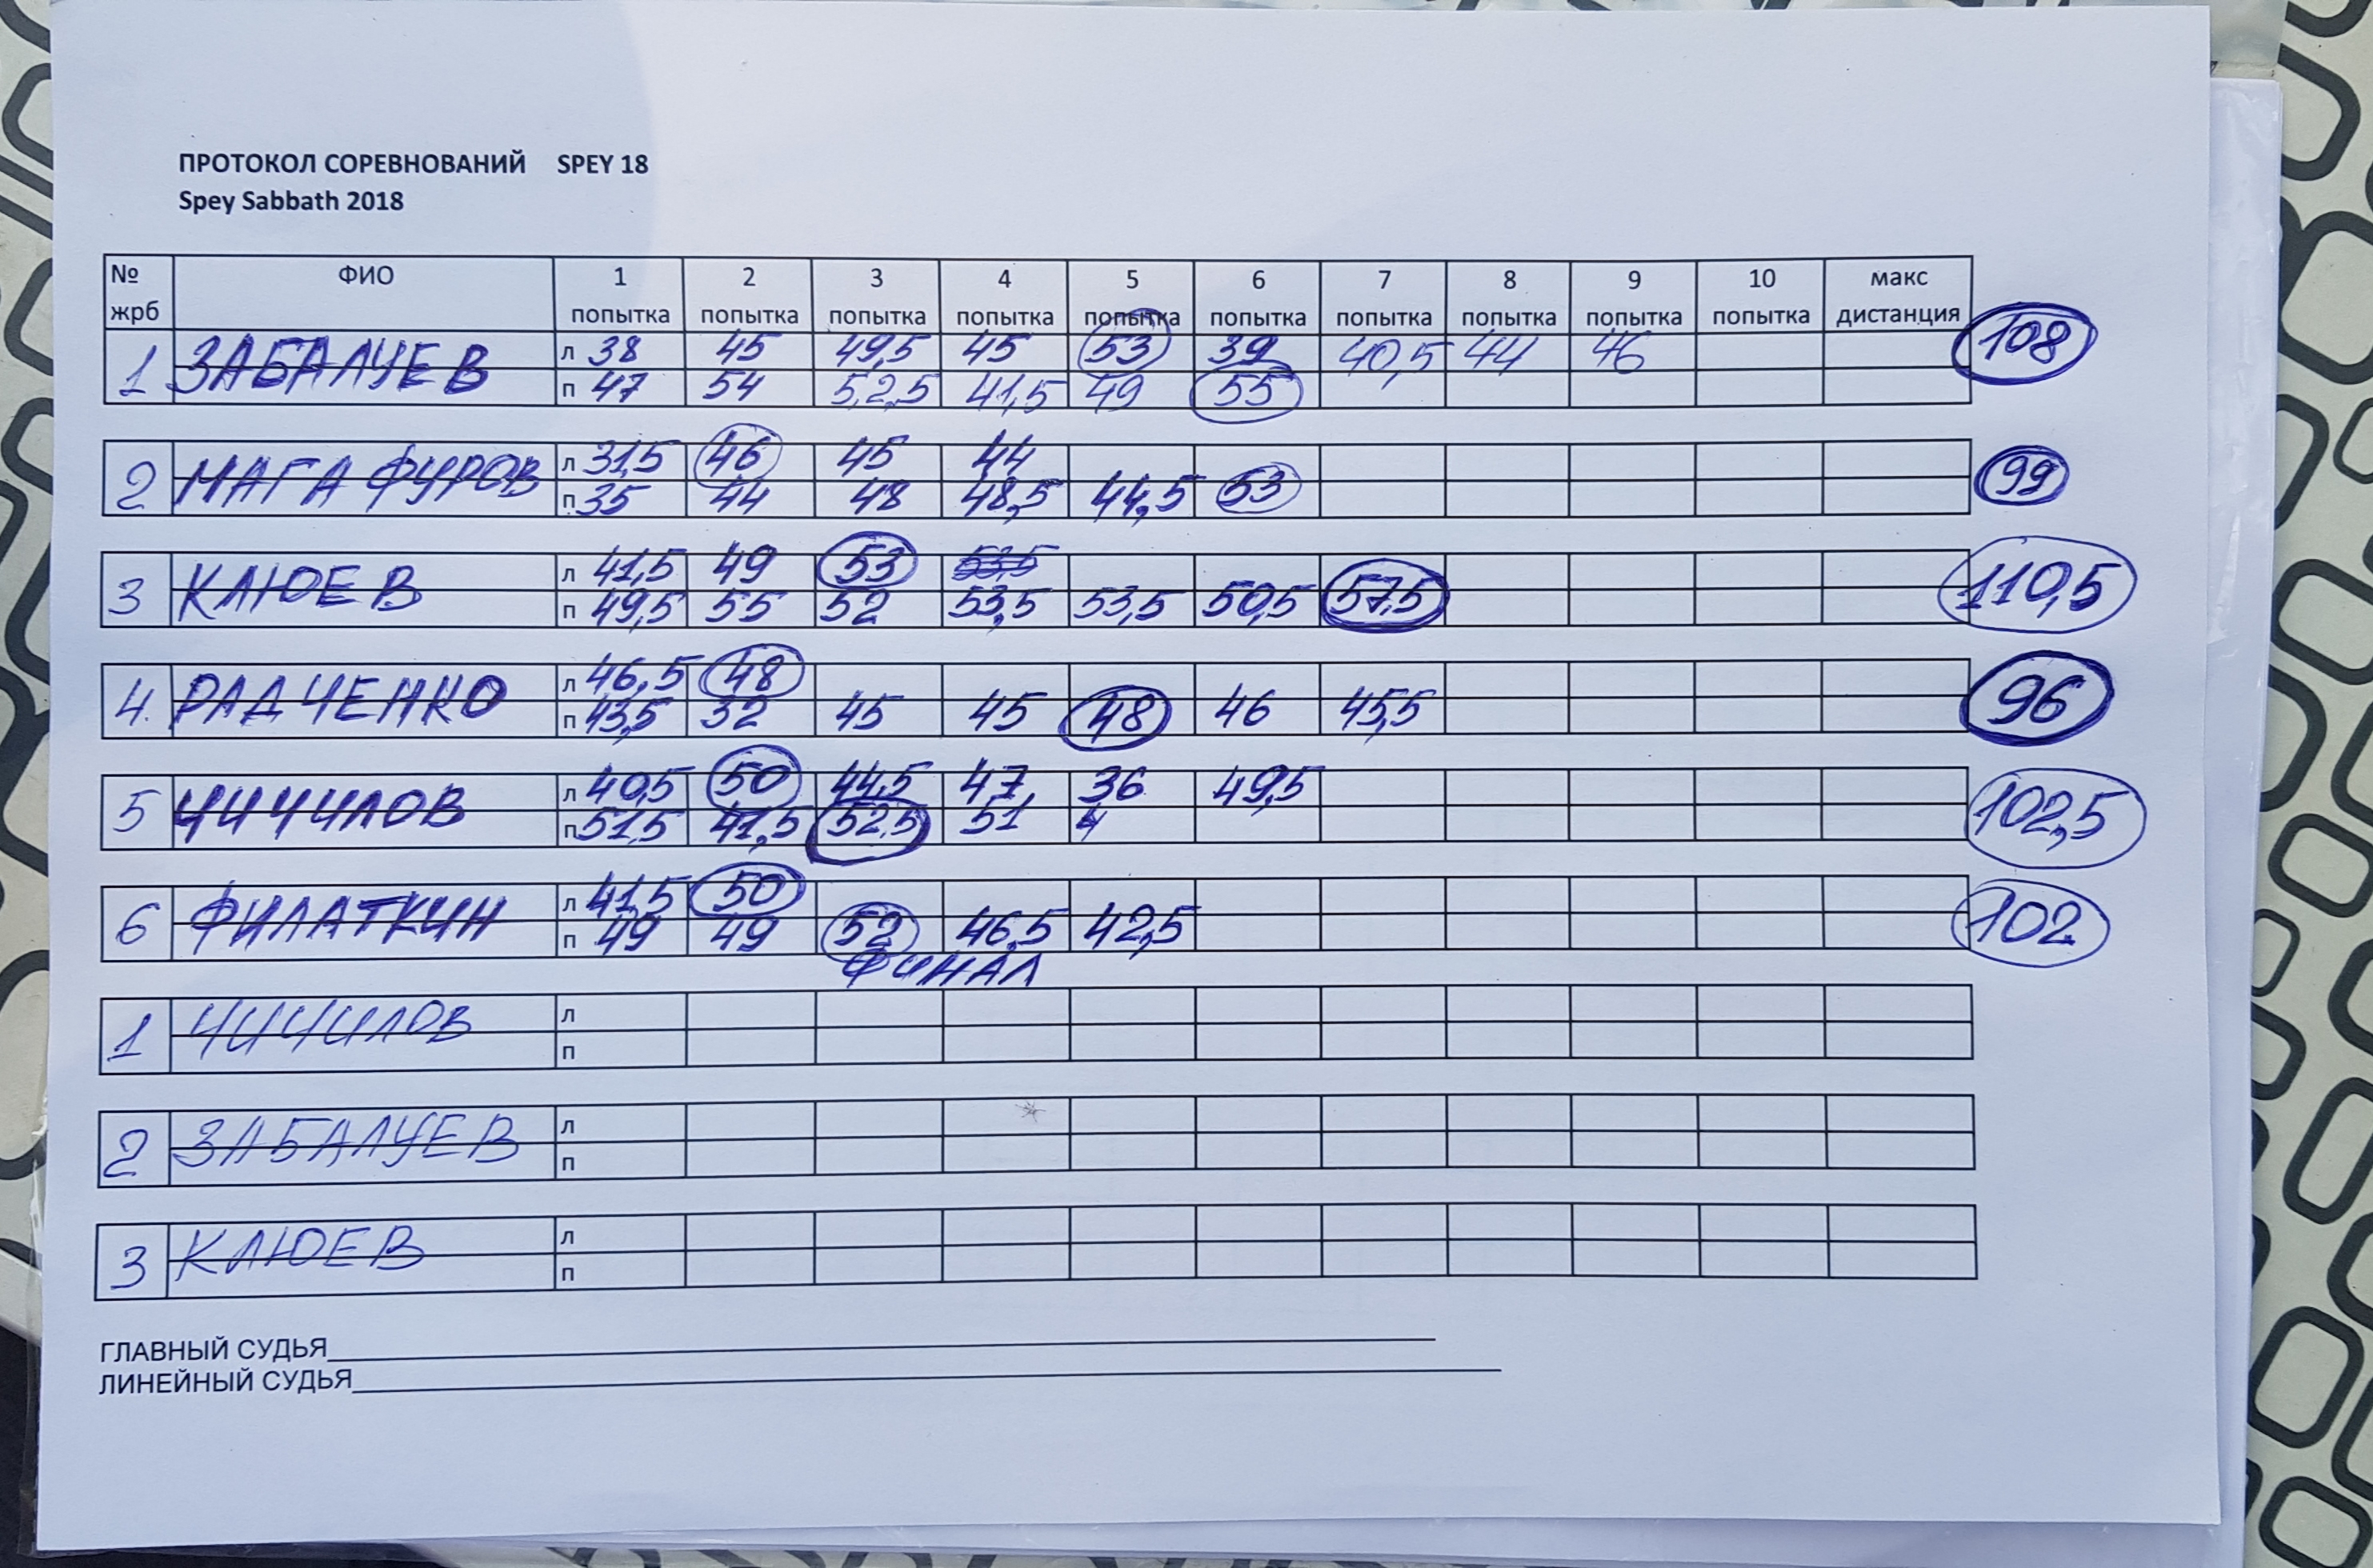 ПРОТОКОЛ СОРЕВНОВАНИЙ SPEY 18
Spey Sabbath 2018
№ жрб ФИО 1 попытка 2 попытка 3 попытка 4 попытка 5 попытка 6 попытка 7 попытка 8 попытка 9 попытка 10 попытка макс дистанция
1 ЗАБАЛУЕВ л 38 45 49,5 45 53 39 40,5 44 46 108
п 47 54 52,5 41,5 49 55
2 МАГАФУРОВ л 31,5 46 45 44 99
п 35 44 48 48,5 44,5 53
3 КЛЮЕВ л 41,5 49 53 53,5 110,5
п 49,5 55 52 53,5 53,5 50,5 57,5
4. РАДЧЕНКО л 46,5 48 96
п 43,5 32 45 45 48 46 45,5
5 ЧИЧИЛОВ л 40,5 50 44,5 47 36 49,5 102,5
п 51,5 41,5 52,5 51 4
6 ФИЛАТКИН л 41,5 50 102
п 49 49 52 46,5 42,5
ФИНАЛ
1 ЧИЧИЛОВ л
п
2 ЗАБАЛУЕВ л
п
3 КЛЮЕВ л
п
ГЛАВНЫЙ СУДЬЯ
ЛИНЕЙНЫЙ СУДЬЯ